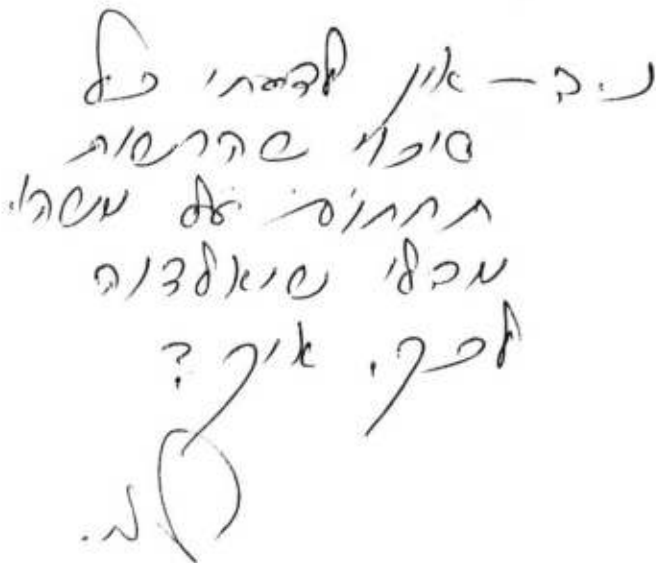 נ.ב – אין לדעתי כל
סיכוי שהרשות
תחתום על משהו
מבלי
לכך. איך?
מ.